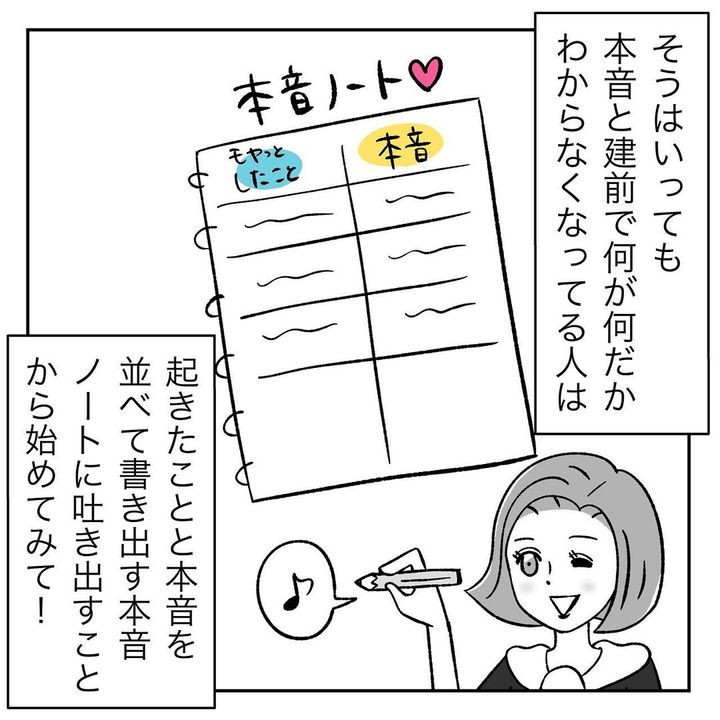 そうはいっても
本音と建前で何が何だか
わからなくなってる人は
本音ノート♥
モヤっと
したこと
本音
起きたことと本音を
並べて書き出す本音
ノートに吐き出すこと
から始めてみて！